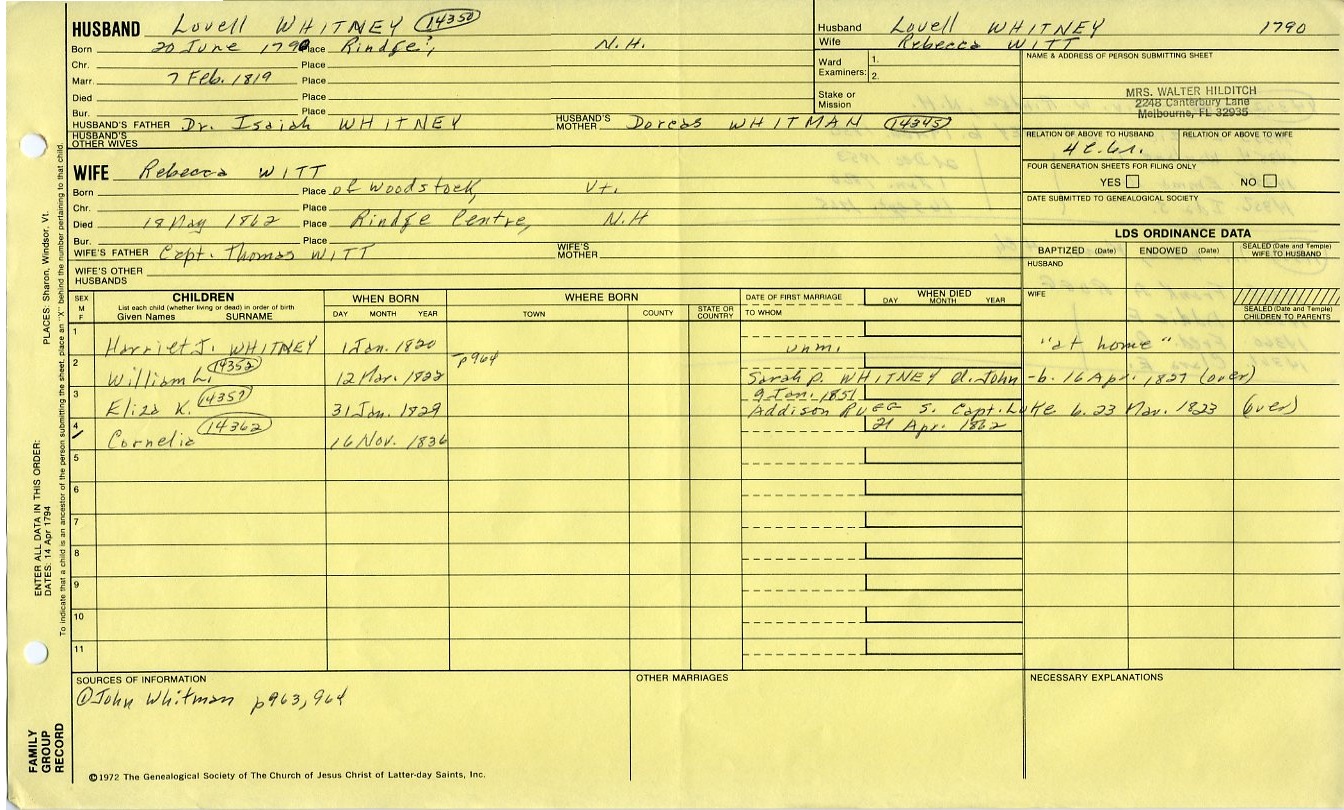 HUSBAND Lovell WHITNEY 14350
Born 20 June 1790 Place Rindge, N.H.
Chr. Place
Marr. 7 Feb. 1819 Place
Died Place
Bur. Place
HUSBAND'S FATHER Dr. Isaiah WHITNEY HUSBAND'S MOTHER Dorcas WHITMAN 14345
HUSBAND'S OTHER WIVES
Husband Lovell WHITNEY 1790
Wife Rebecca WITT
Ward Examiners: 1.
2.
Stake or Mission
NAME & ADDRESS OF PERSON SUBMITTING SHEET
MRS. WALTER HILDITCH
2248 Canterbury Lane
Melbourne, FL 32935
RELATION OF ABOVE TO HUSBAND RELATION OF ABOVE TO WIFE
FOUR GENERATION SHEETS FOR FILING ONLY
YES NO
DATE SUBMITTED TO GENEALOGICAL SOCIETY
WIFE Rebecca WITT
Born Place of Woodstock, Vt.
Chr. Place
Died 18 May 1862 Place Rindge Centre, N.H
Bur. Place
WIFE'S FATHER Capt. Thomas WITT WIFE'S MOTHER
WIFE'S OTHER HUSBANDS
LDS ORDINANCE DATA
BAPTIZED (Date) ENDOWED (Date) SEALED (Date and Temple) WIFE TO HUSBAND
HUSBAND
WIFE
SEALED (Date and Temple) CHILDREN TO PARENTS
SEX M F CHILDREN WHEN BORN WHERE BORN DATE OF FIRST MARRIAGE WHEN DIED
List each child (whether living or dead) in order of birth
Given Names SURNAME DAY MONTH YEAR TOWN COUNTY STATE OR COUNTRY TO WHOM DAY MONTH YEAR
1 Harriet J. WHITNEY 1 Jan. 1820 unm. "at home"
2 William L. 14352 12 Mar. 1822 p964 Sarah P. WHITNEY d. John -b. 16 Apr. 1827 (over)
9 Jan. 1851
3 Eliza K. 14357 31 Jan. 1829 Addison RUGG s. Capt. Luke b. 23 Mar. 1823 (over)
21 Apr. 1862
4 Cornelia 14362 16 Nov. 1836
5
6
7
8
9
10
11
SOURCES OF INFORMATION OTHER MARRIAGES NECESSARY EXPLANATIONS
① John Whitman p963, 964
©1972 The Genealogical Society of The Church of Jesus Christ of Latter-day Saints, Inc.
FAMILY GROUP RECORD
ENTER ALL DATA IN THIS ORDER:
DATES: 14 Apr 1794
PLACES: Sharon, Windsor, Vt.
To indicate that a child is an ancestor of the person submitting the sheet, place an "X" behind the number pertaining to that child.